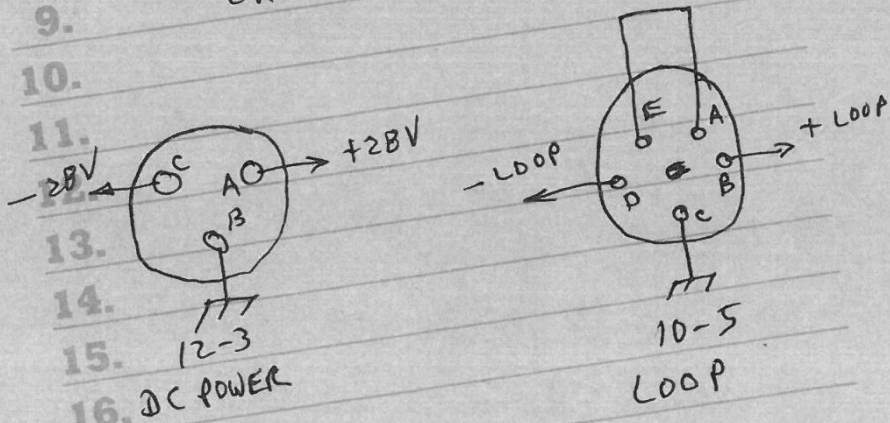 9.
10.
11.
12.
13.
14.
15.
16.
-28V
C
A
+28V
B
12-3
DC POWER
E
A
+ LOOP
- LOOP
D
B
C
10-5
LOOP